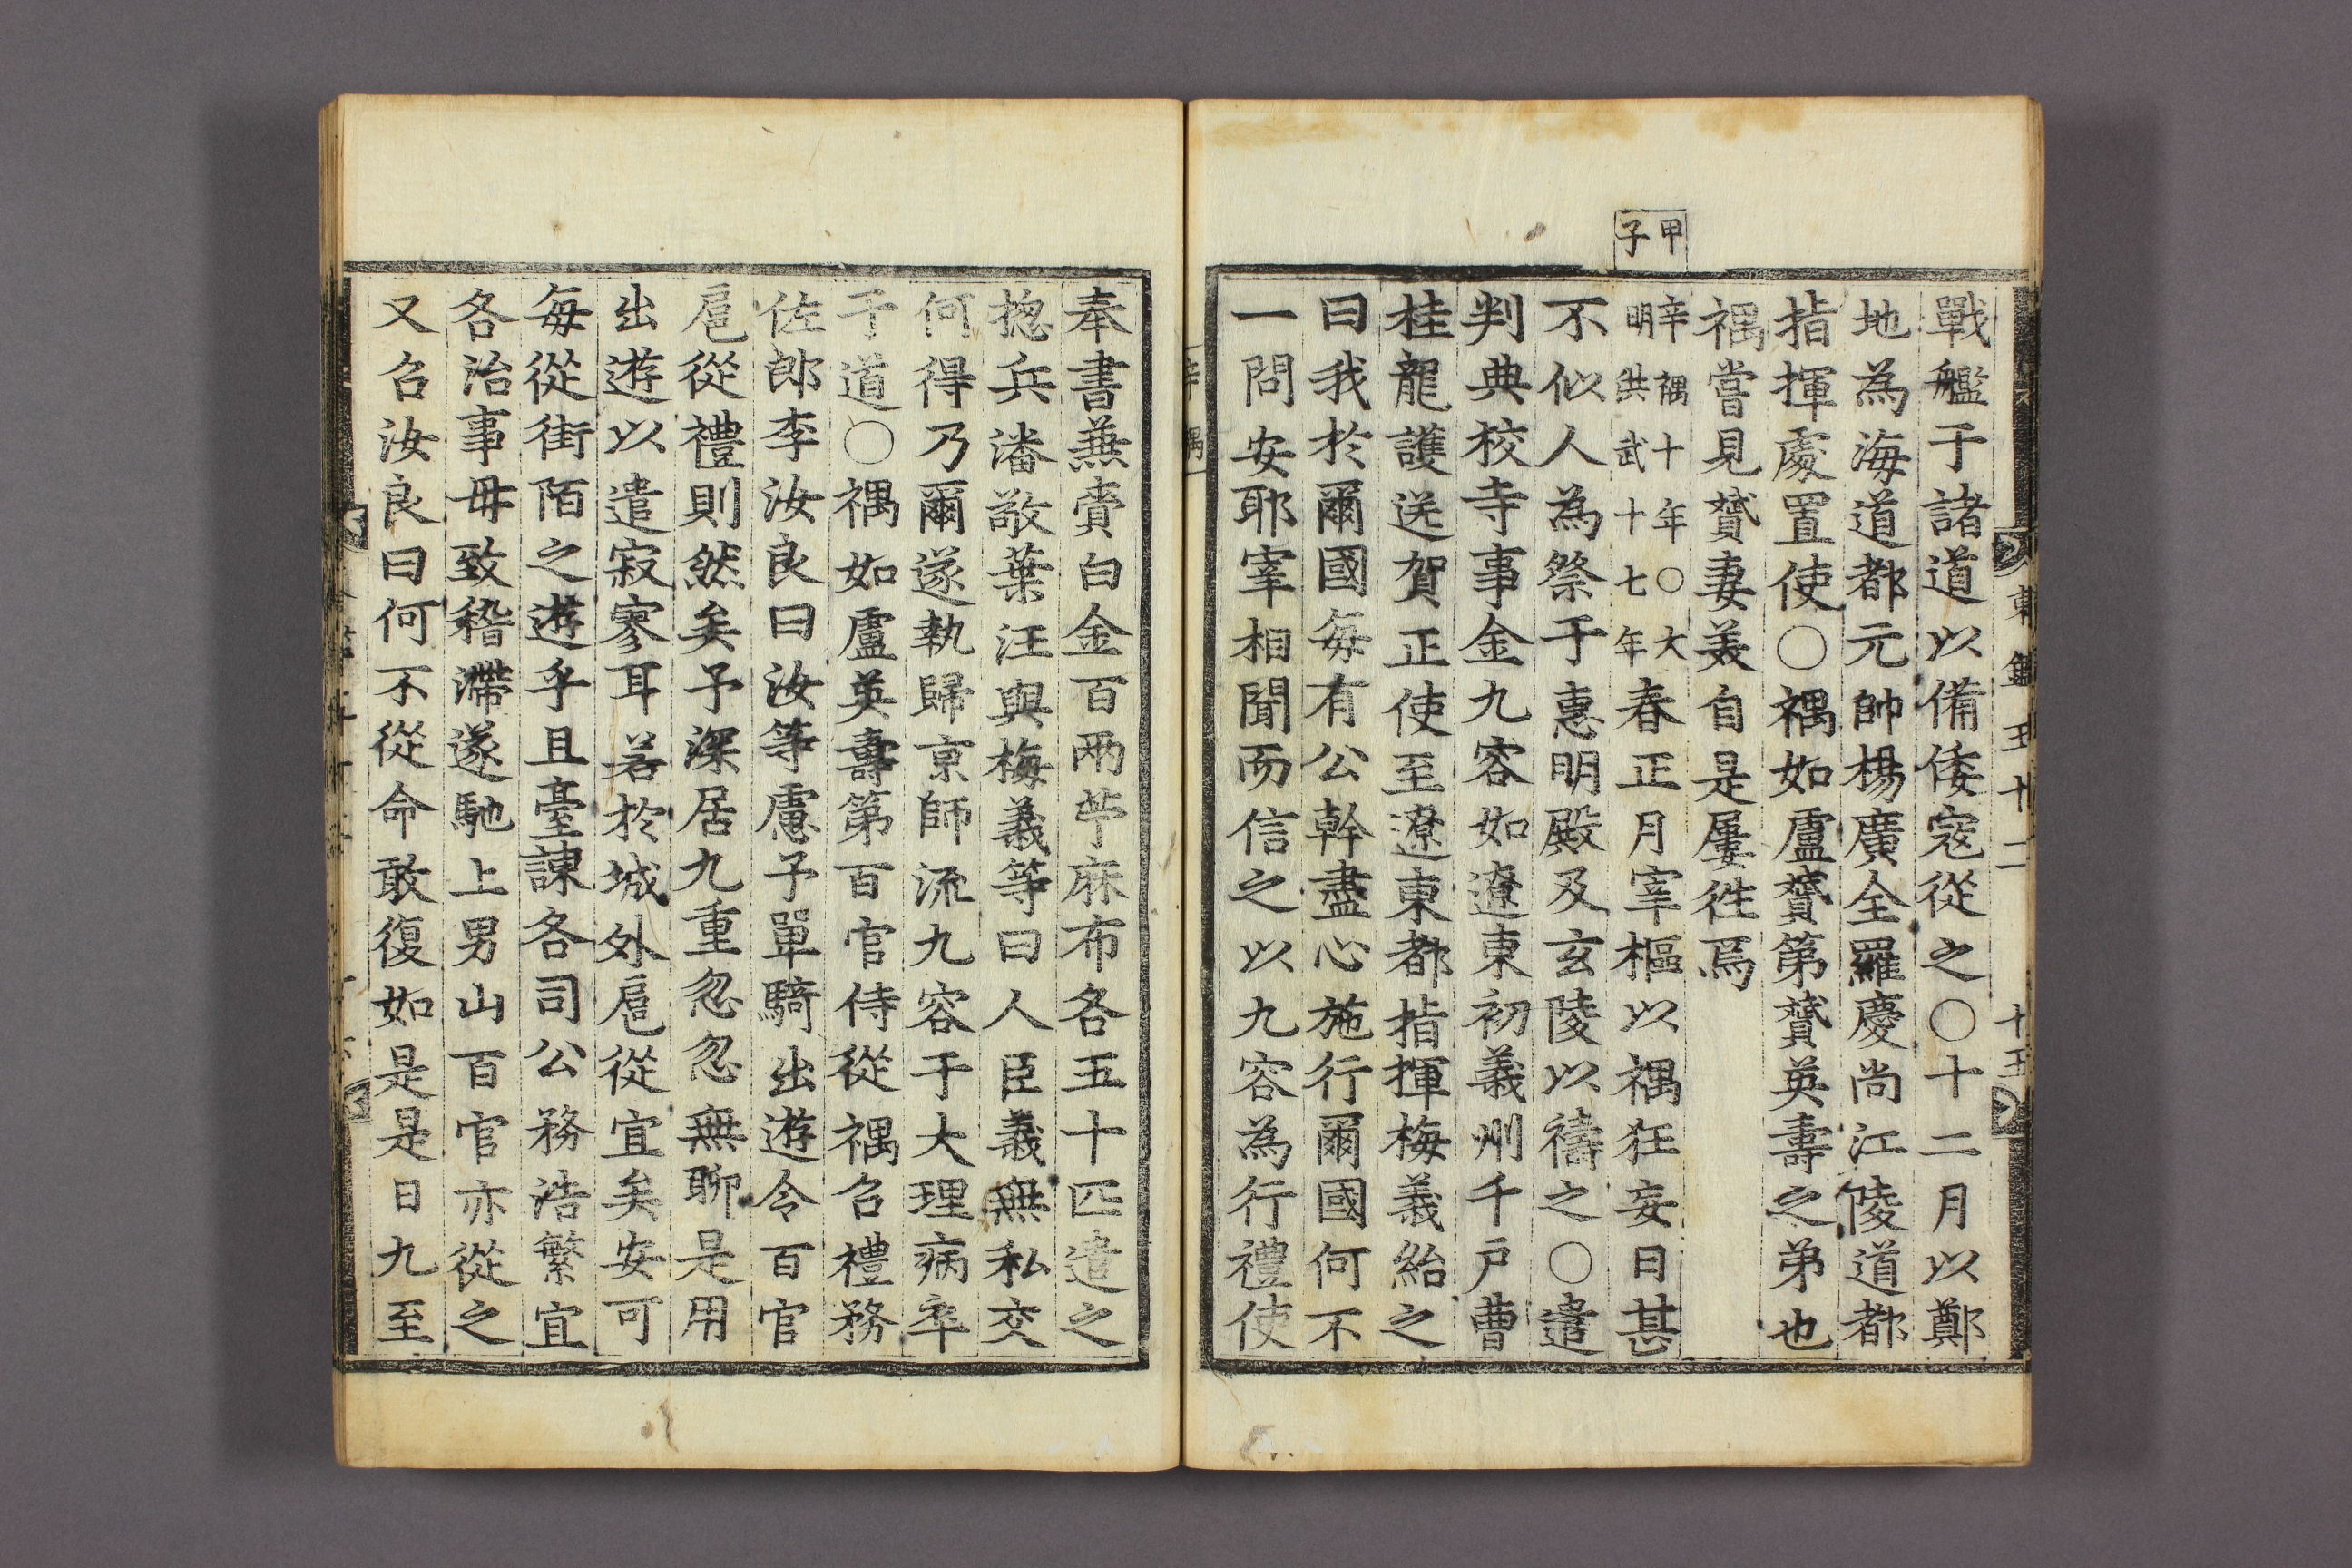 戰艦于諸道以備倭寇從之○十二月以鄭
地為海道都元帥楊廣全羅慶尚江陵道都
指揮處置使○禑如盧贇第贇英壽之弟也
禑嘗見贇妻美自是屢徃焉
甲子
辛禑十年○大
明洪武十七年
春正月宰樞以禑狂妄日甚
不似人為祭于惠明殿及玄陵以禱之○遣
判典校寺事金九容如遼東初義州千戶曹
桂龍護送賀正使至遼東都指揮梅義紿之
曰我於爾國每有公幹盡心施行爾國何不
一問安耶宰相聞而信之以九容為行禮使
奉書兼賷白金百兩苧麻布各五十匹遣之
揔兵潘敬葉汪與梅義等曰人臣義無私交
何得乃爾遂執歸京師流九容于大理病卒
于道○禑如盧英壽第百官侍從禑召禮務
佐郎李汝良曰汝等慮予單騎出遊令百官
扈從禮則然矣予深居九重忽忽無聊是用
出遊以遣寂寥耳若於城外扈從宜矣安可
每從街陌之遊乎且臺諫各司公務浩繁宜
各治事毋致稽滯遂馳上男山百官亦從之
又召汝良曰何不從命敢復如是是日九至
東
鑑五十二
十五
辛禑